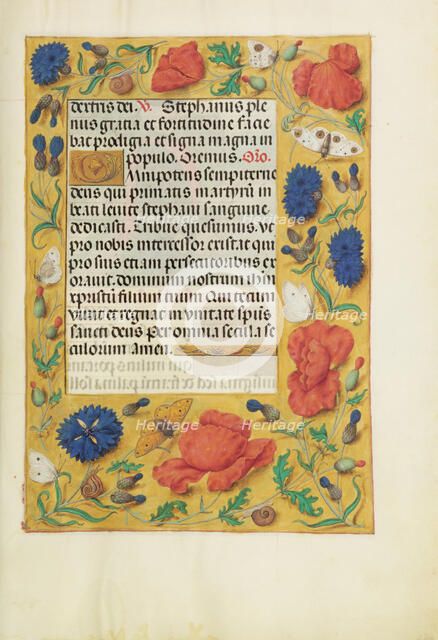 dextris dei. V. Stephanus ple
nus gratia et fortitudine facie
bat prodigia et signa magna in
populo. Oremus. Oro.
Omnipotens sempiterne
deus qui primitias martyrum in
beati leuite stephani sanguine
dedicasti. Tribue quesumus. vt
pro nobis intercessor existat qui
pro suis etiam persecutoribus ex
orauit. dominum nostrum ihm
xpristum filium tuum Qui tecum
viuit et regnat in vnitate spūs
sancti deus Per omnia secula se
culorum Amen.
Heritage Heritage
Heritage Heritage
Heritage Heritage